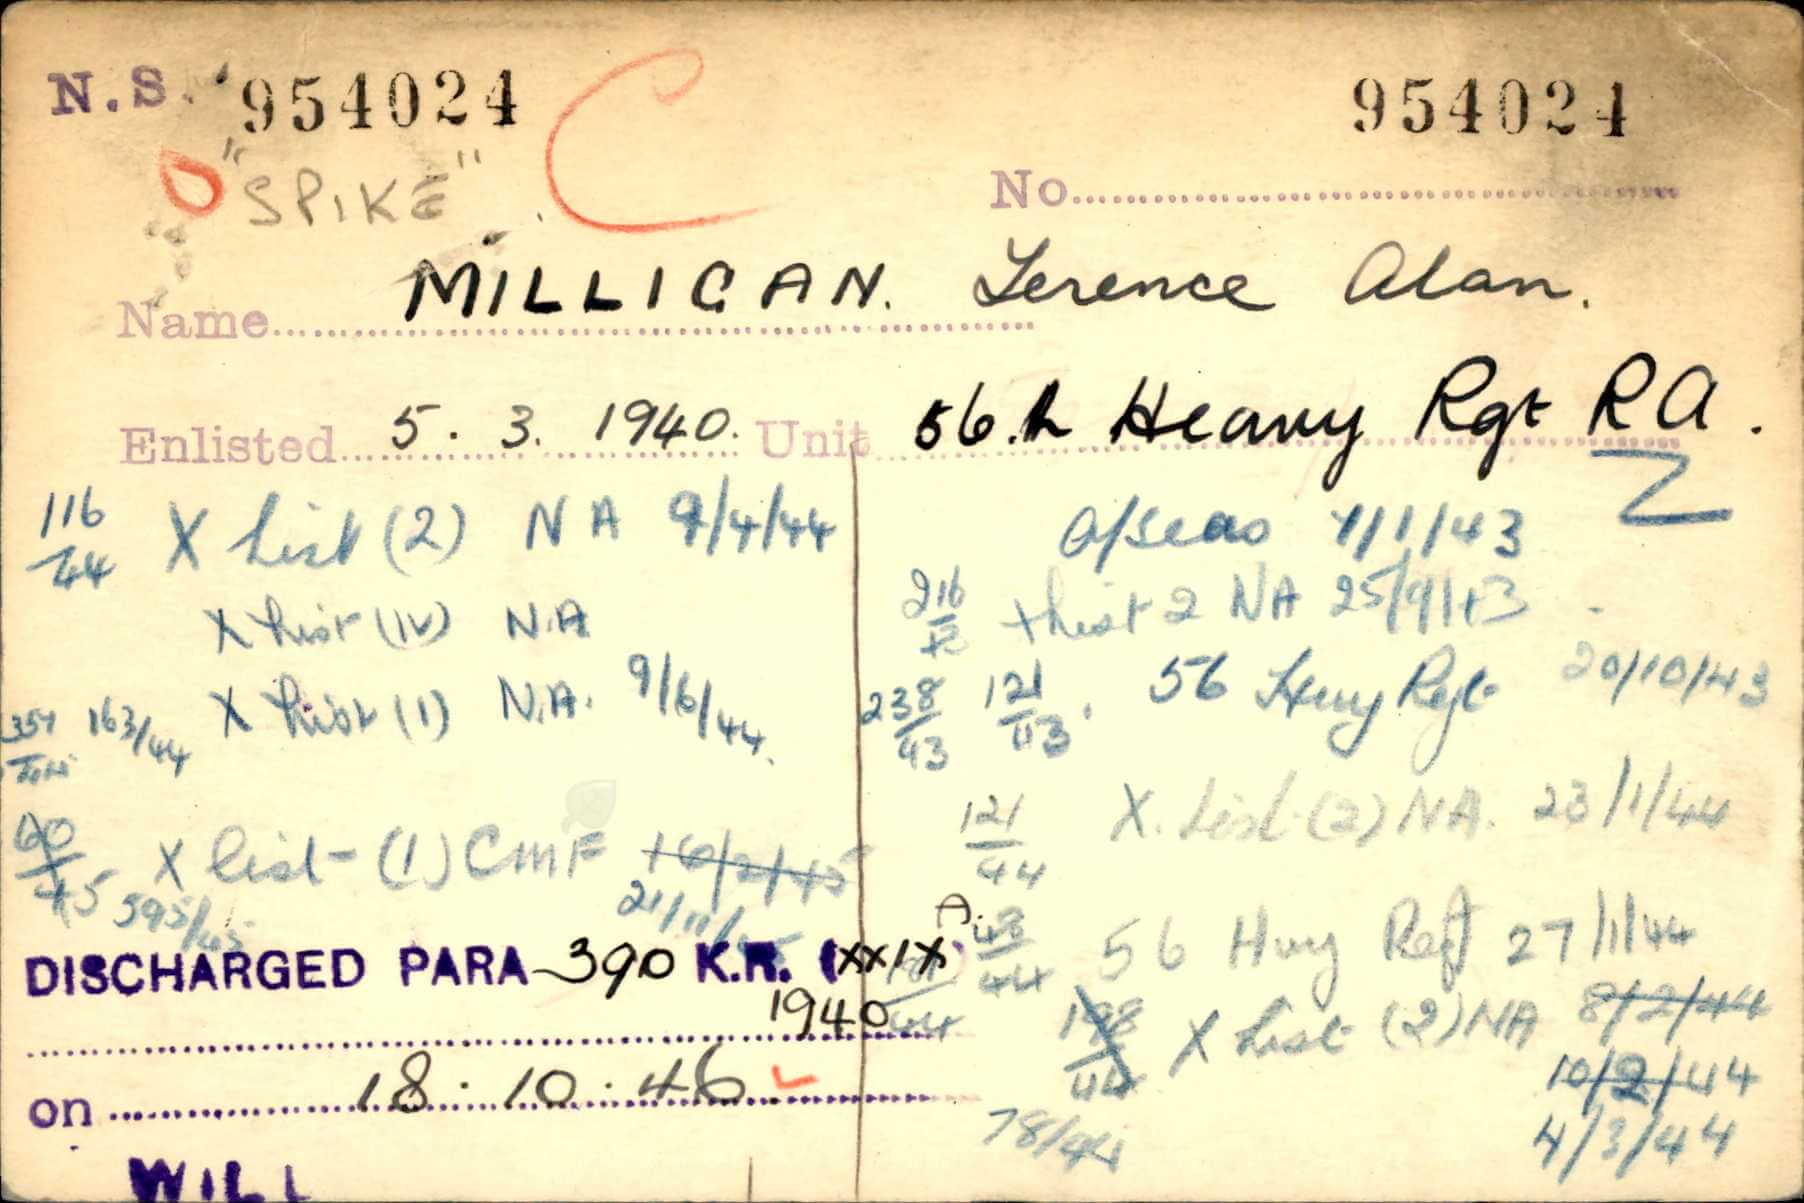 N.S. 954024 C 954024
"SPIKE" No
Name MILLIGAN. Terence Alan.
Enlisted 5. 3. 1940. Unit 56.h Heavy Rgt RA.
116/44 X List (2) NA 9/4/44
X List (IV) N.A
163/44 X List (1) N.A. 9/6/44.
60/45 X list - (1) CMF 16/2/45
595/45 21/11/
O/seas 7/1/43
216/43 X List 2 NA 25/9/43
238/43 121/43. 56 Hvy Regt 20/10/43
121/44 X. List (2) NA. 23/1/44
43/44 56 Hvy Regt 27/1/44
198/44 X List (2) NA 8/2/44
10/2/44
78/44 4/3/44
DISCHARGED PARA 390 K.R. (XXIX)
1940
on 18.10.46
WILL